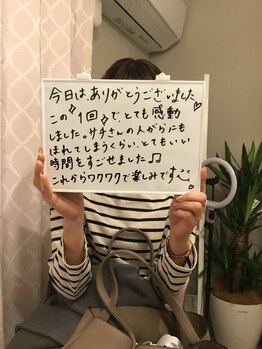 今日は、ありがとうございました♡
この"1回"でとても感動
しました。サチさんの人がらにも
ほれてしまうくらい、とてもいい
時間をすごせました♫
これからワクワクで楽しみですさ。